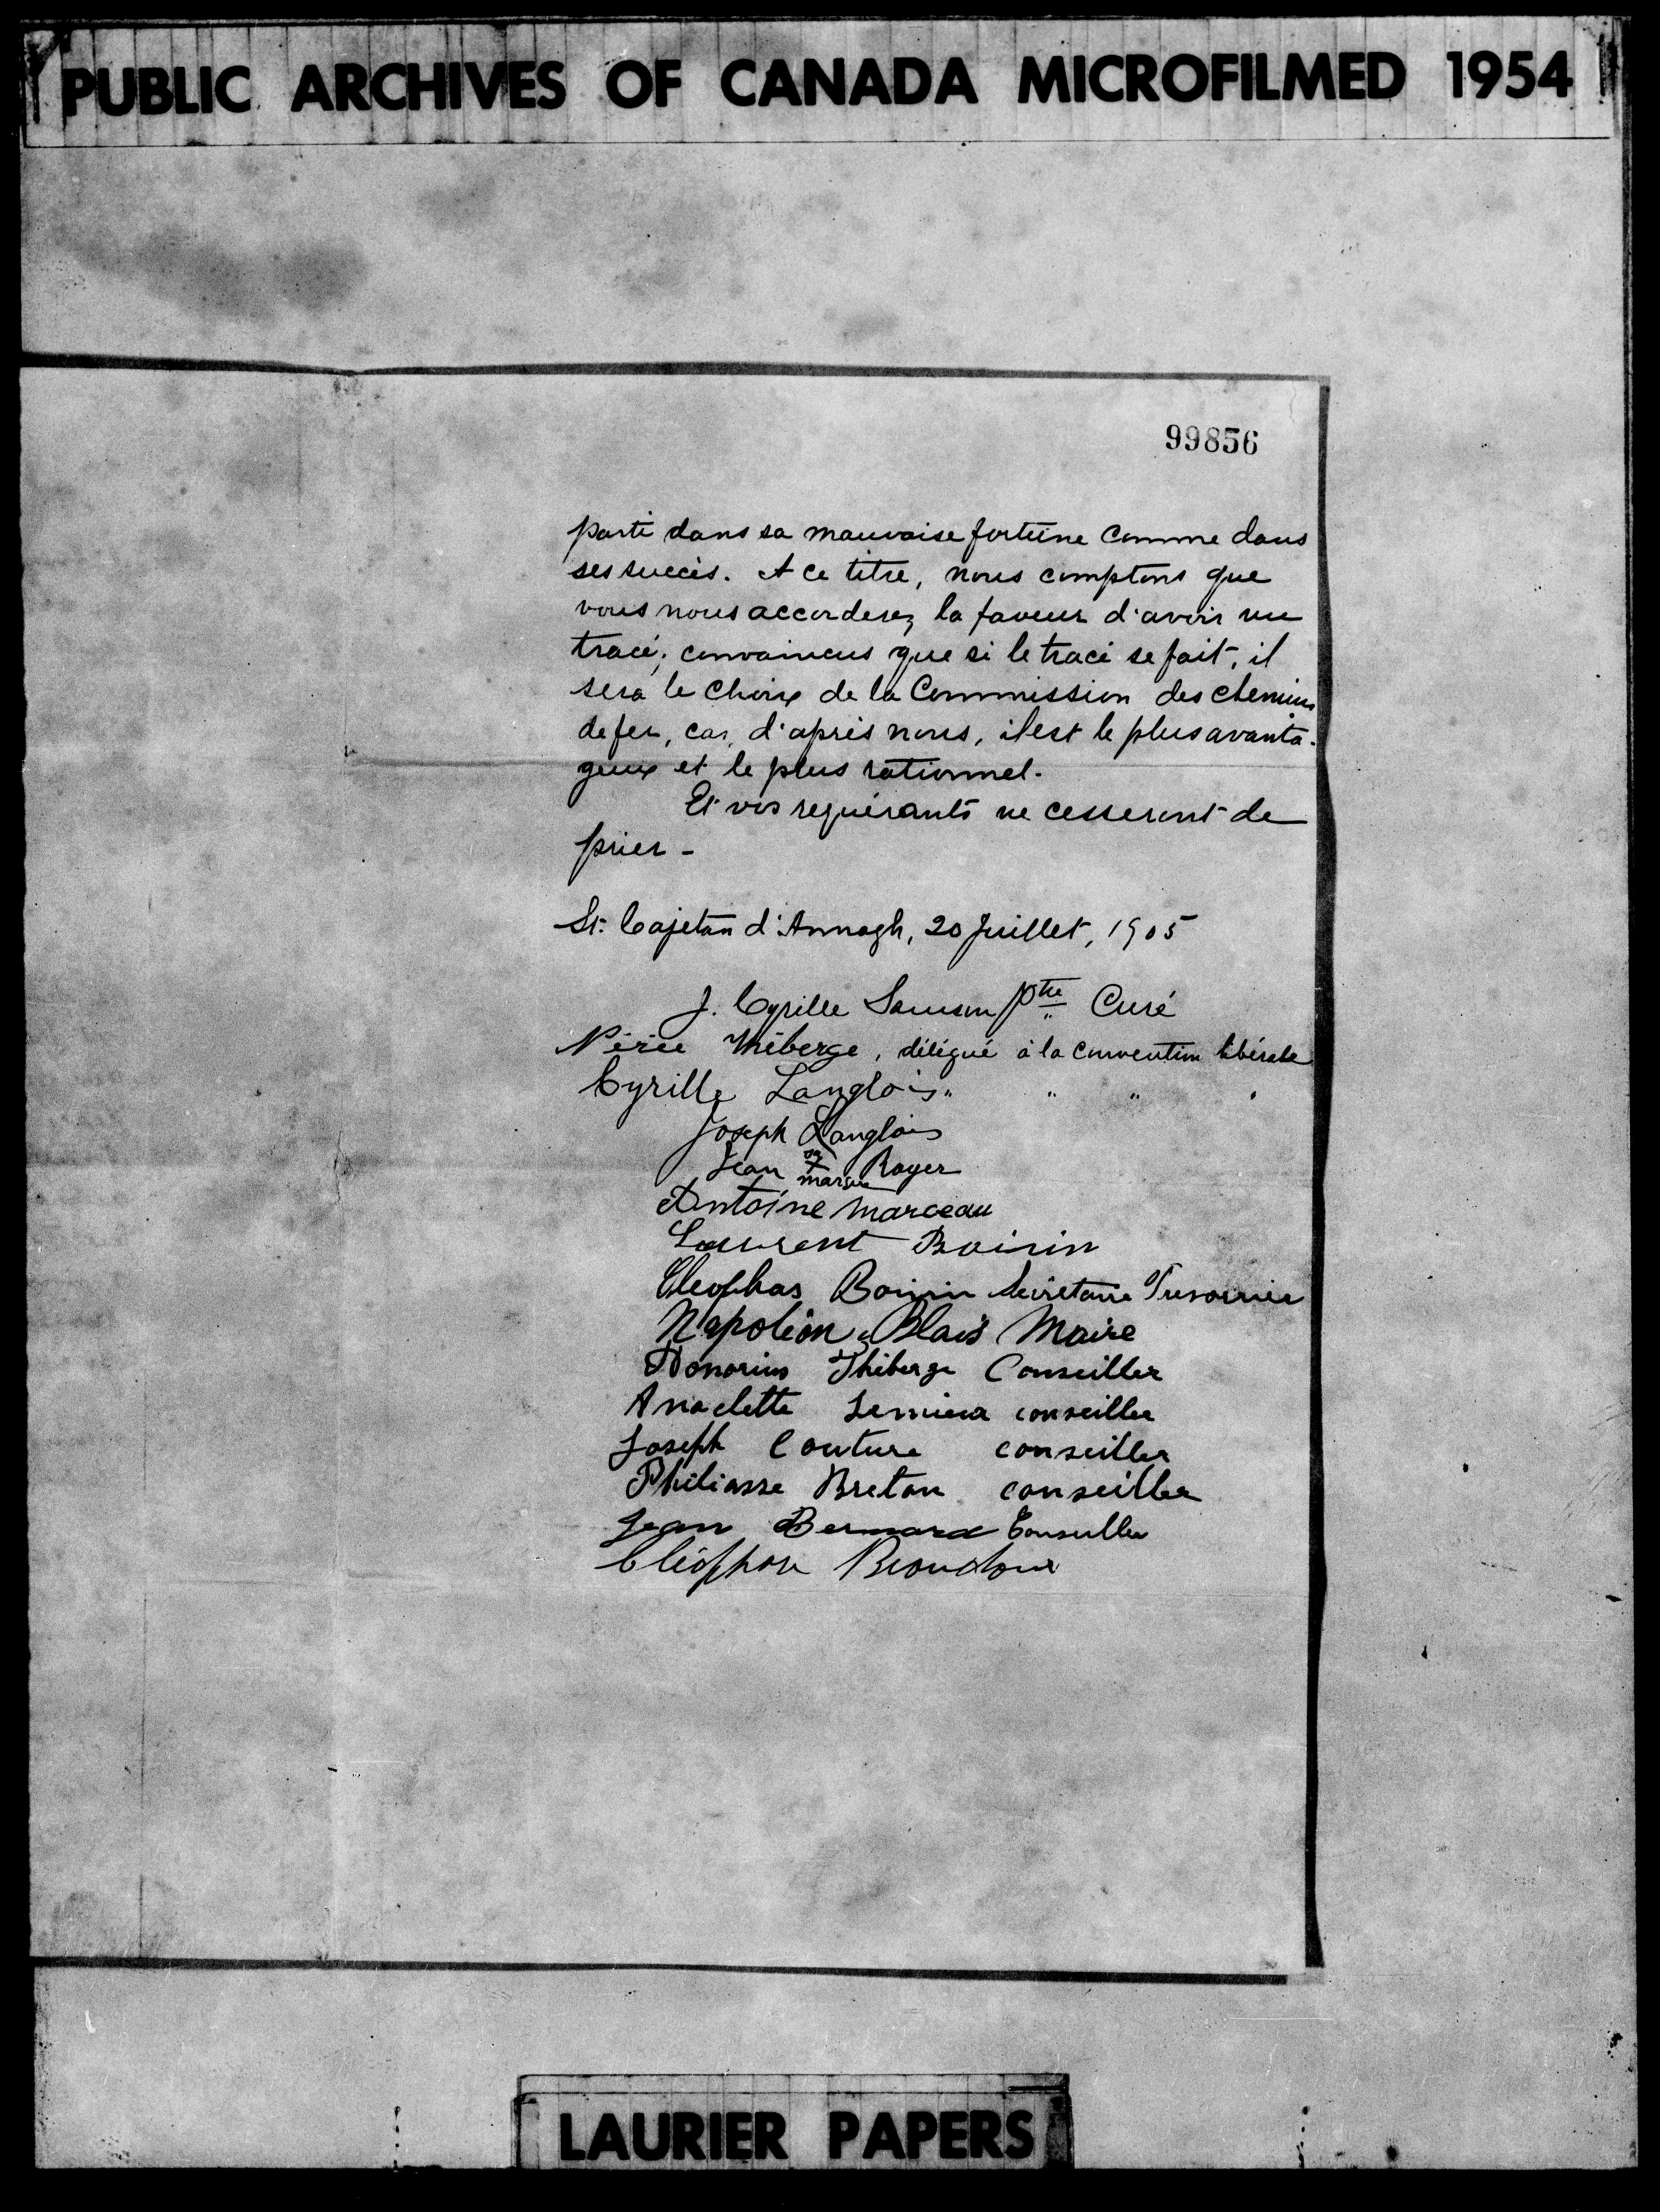 PUBLIC ARCHIVES OF CANADA MICROFILMED 1954
99856
parti dans sa mauvaise fortune comme dans
ses succès. A ce titre, nous comptons que
vous nous accorderez la faveur d'avoir un
tracé; convaincus que si le tracé se fait, il
sera le choix de la Commission des chemins
de fer, car, d'après nous, il est le plus avanta-
geux et le plus rationnel.
Et vos requérants ne cesseront de
prier -
St. Cajetan d'Armagh, 20 Juillet, 1905
J. Cyrille Samson Ptre Curé
Nérée Théberge, délégué à la convention libérale
Cyrille Langlois " " " "
Joseph Langlois
Jean sa X marque Royer
Antoine Marceau
Laurent Boivin
Cleophas Boivin Secretaire Tresorier
Napoléon Blais Maire
Honorius Thiberge Conseiller
Anaclette Lemieux conseiller
Joseph Couture conseiller
Philiasse Breton conseiller
Jean Bernard Conseiller
Cléophase
LAURIER PAPERS